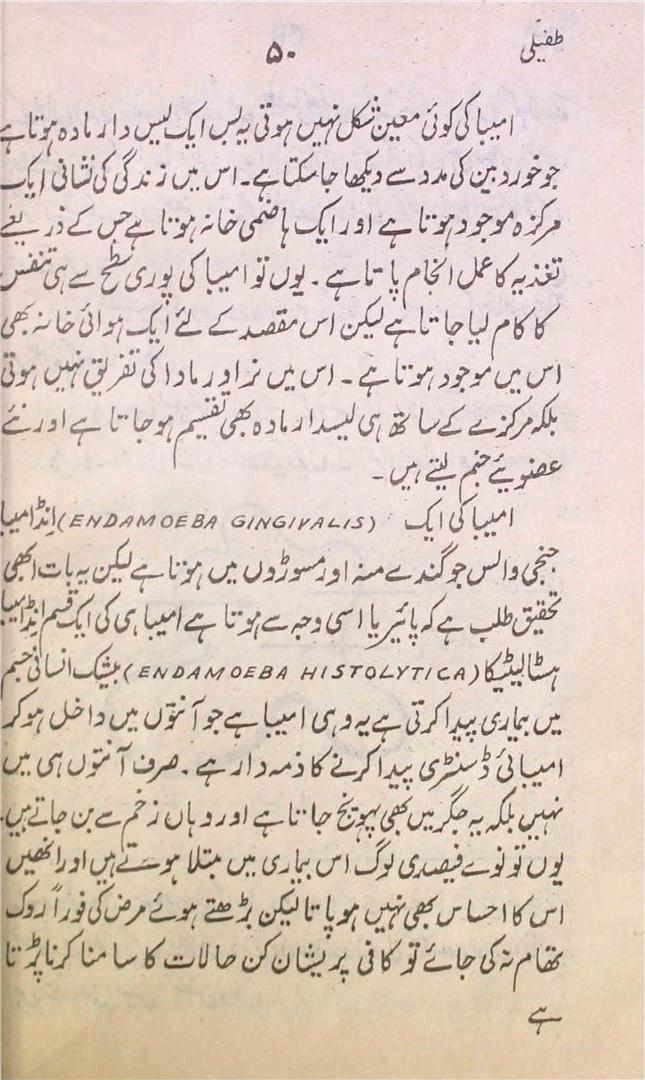 طفیلی
۵۰
امیبا کی کوئی معین شکل نہیں ہوتی یہ بس ایک لیس دار مادہ ہوتا ہے
جو خوردبین کی مدد سے دیکھا جا سکتا ہے۔ اس میں زندگی کی نشانی ایک
مرکزہ موجود ہوتا ہے اور ایک ہاضمی خانہ ہوتا ہے جس کے ذریعے
تغذیہ کا عمل انجام پاتا ہے۔ یوں تو امیبا کی پوری سطح سے ہی تنفس
کا کام لیا جاتا ہے لیکن اس مقصد کے لئے ایک ہوائی خانہ بھی
اس میں موجود ہوتا ہے۔ اس میں نر اور مادا کی تفریق نہیں ہوتی
بلکہ مرکزے کے ساتھ ہی لیسدار مادہ بھی تقسیم ہو جاتا ہے اور نئے
عضویئے جنم لیتے ہیں۔
امیبا کی ایک (ENDAMOEBA GINGIVALIS) اِنڈامیبا
جنجی والس جو گندے منہ اور مسوڑوں میں ہوتا ہے لیکن یہ بات ابھی
تحقیق طلب ہے کہ پائیریا اسی وجہ سے ہوتا ہے امیبا ہی کی ایک قسم انڈامیبا
ہسٹالیٹیکا (ENDAMOEBA HISTOLYTICA) بیشک انسانی جسم
میں بیماری پیدا کرتی ہے یہ وہی امیبا ہے جو آنتوں میں داخل ہو کر
امیبائی ڈسنٹری پیدا کرنے کا ذمہ دار ہے۔ صرف آنتوں ہی میں
نہیں بلکہ یہ جگر میں بھی پہونچ جاتا ہے اور وہاں زخم سے بن جاتے ہیں۔
یوں تو نوے فیصدی لوگ اس بیماری میں مبتلا ہوتے ہیں اور انھیں
اس کا احساس بھی نہیں ہو پاتا لیکن بڑھتے ہوئے مرض کی فوراً روک
تھام نہ کی جائے تو کافی پریشان کن حالات کا سامنا کرنا پڑتا
ہے